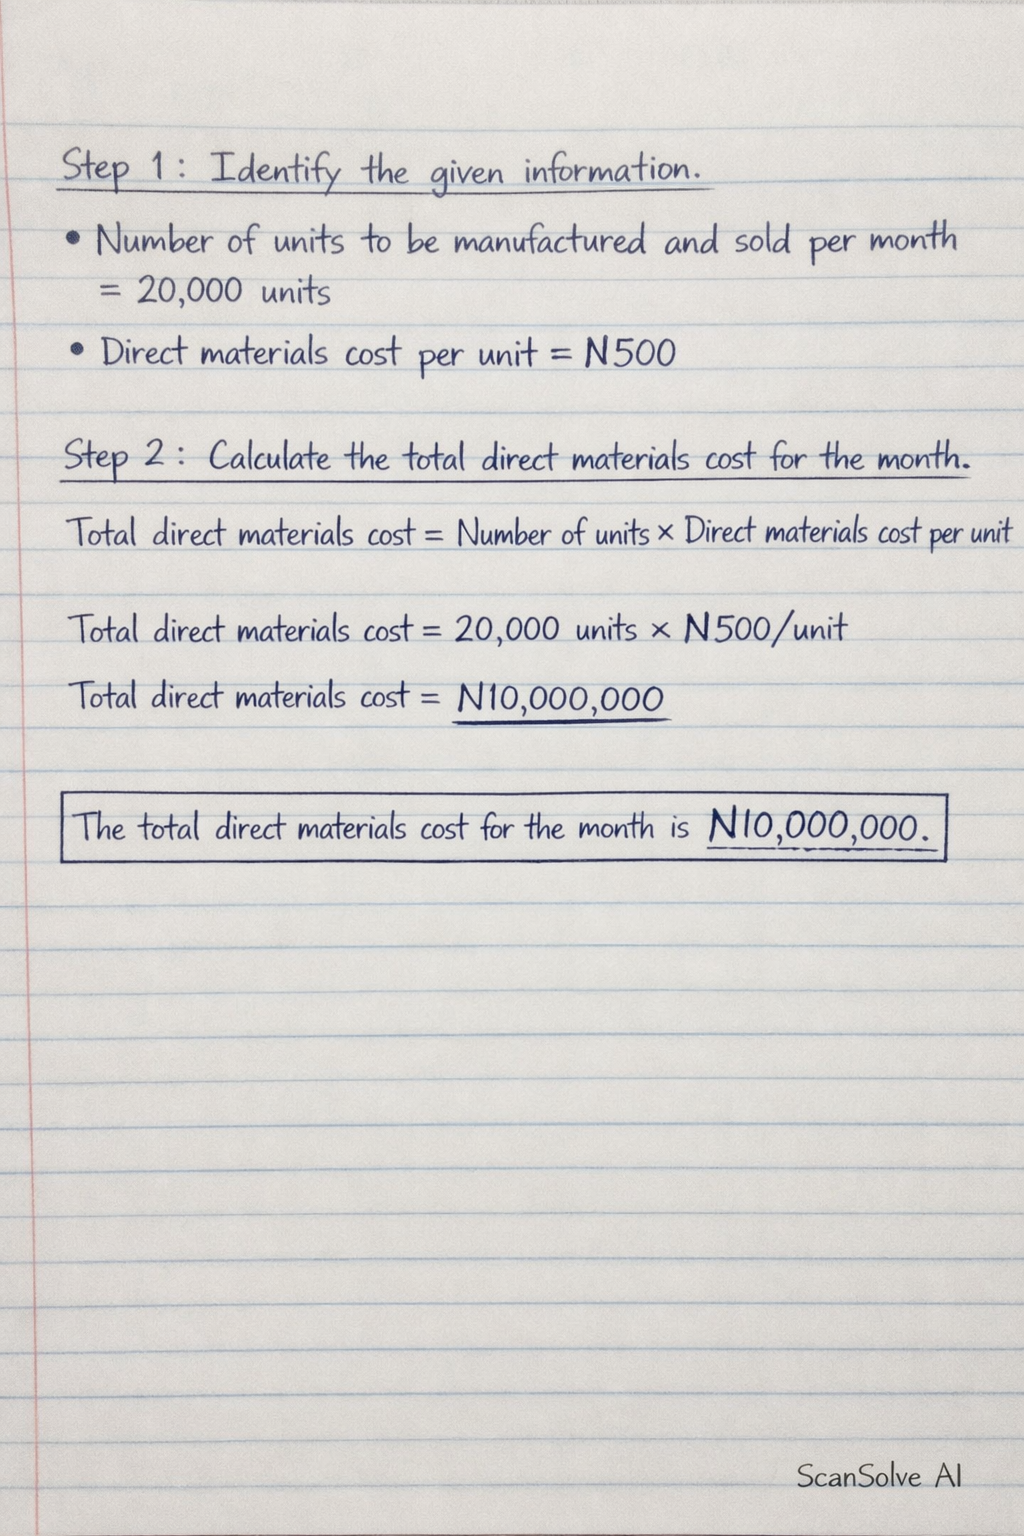 Step 1: Identify the given information.
• Number of units to be manufactured and sold per month
= 20,000 units
• Direct materials cost per unit = N500
Step 2: Calculate the total direct materials cost for the month.
Total direct materials cost = Number of units × Direct materials cost per unit
Total direct materials cost = 20,000 units × N500/unit
Total direct materials cost = N10,000,000
The total direct materials cost for the month is N10,000,000.
ScanSolve AI